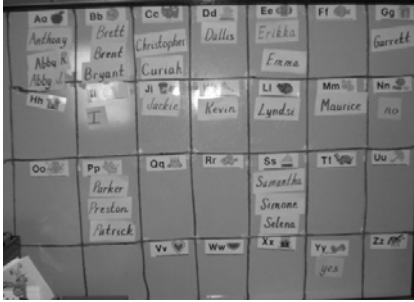 Aa
Anthony
Abby R
Abby J.
Bb
Brett
Brent
Bryant
Cc
Christopher
Curiah
Dd
Dallis
Ee
Erikka
Emma
Ff
Gg
Garrett
Hh
Ii
I
Jj
Jackie
Kevin
Ll
Lyndsi
Mm
Maurice
Nn
no
Oo
Pp
Parker
Preston
Patrick
Qq
Rr
Ss
Samantha
Simone
Selena
Tt
Uu
Vv
Ww
Xx
Yy
yes
Zz